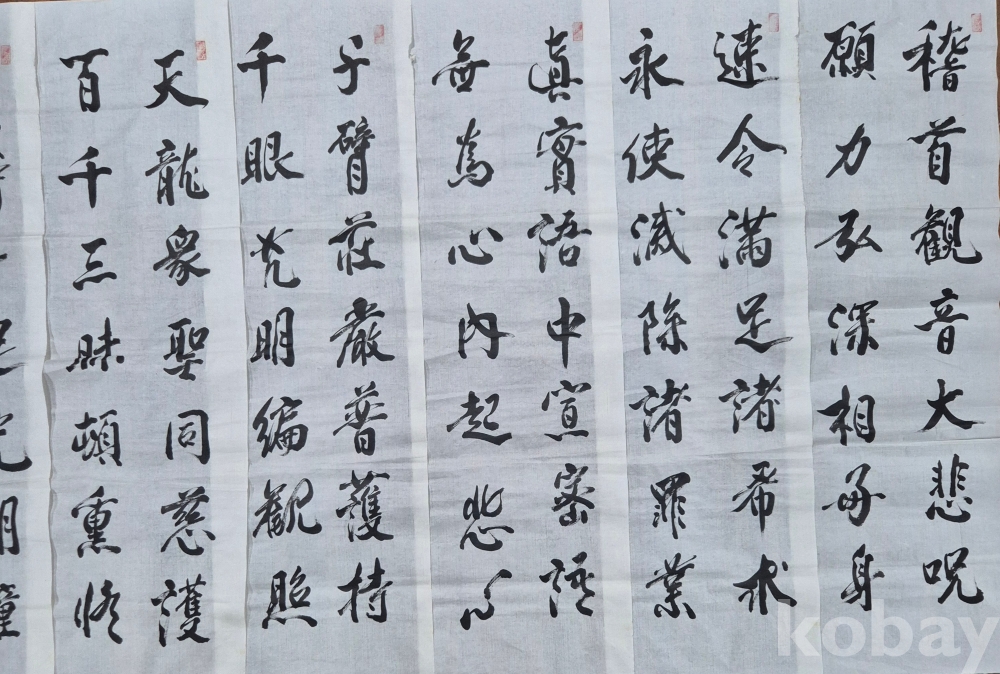 稽首觀音大悲呪
願力弘深相好身
速令滿足諸希求
永使滅除諸罪業
真實語中宣密語
無為心內起悲心
臂莊嚴普護持
千眼光明編觀照
天龍衆聖同慈護
百千三昧頓熏修
明幢
kobay